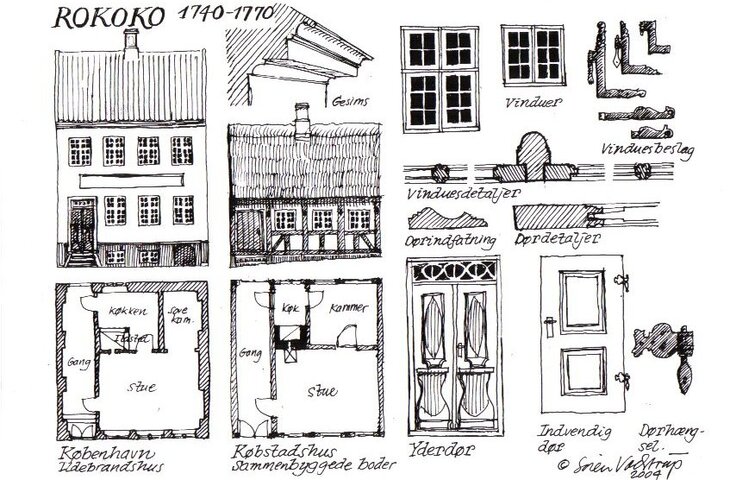 ROKOKO 1740-1770
Gesims
Vinduer
Vinduesbeslag
Vinduesdetaljer
Dørindfatning
Dørdetaljer
Køkken
Sove
kam.
Ildsted
Gang
Stue
Køk.
Kammer
Gang
Stue
København
Ildebrandshus
Købstadshus
Sammenbyggede boder
Yderdør
Indvendig
dør
Dørhæng-
sel.
© Søren Vadstrup
2004